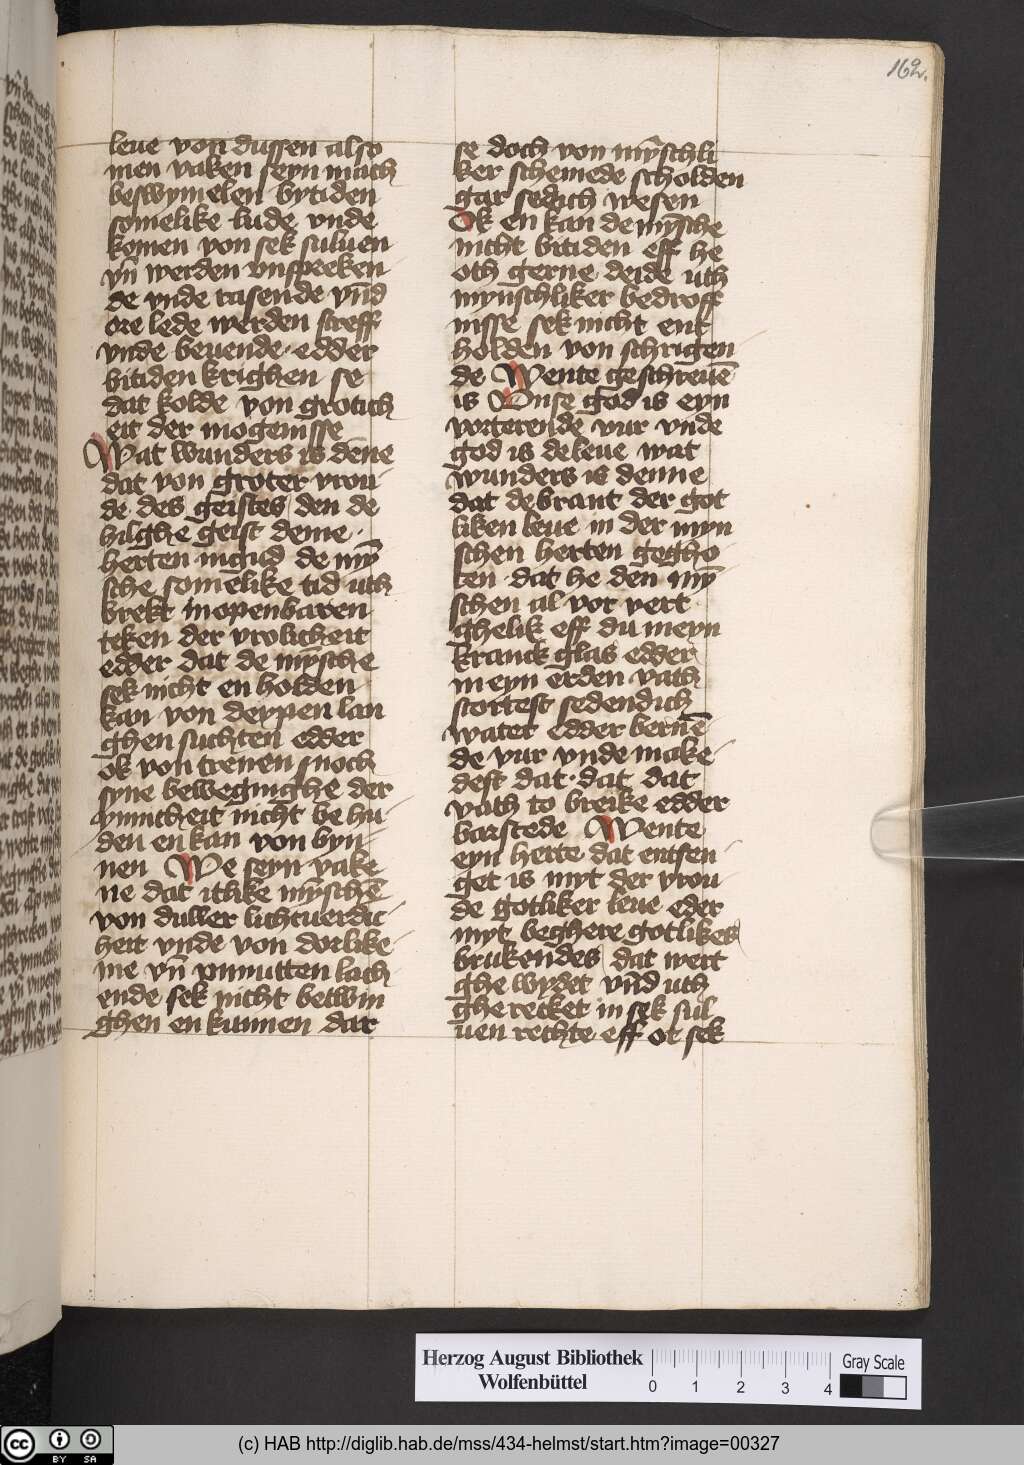 162.
leue von dussen also
men vaken seyn mach
beswymelen bytiden
somelike lude vnde
komen von sek suluen
vn̄ werden vnspreken
de vnde rasende vn̄d
ore lede werden streff
vnde beuende edder
bitiden krighen se
dat kolde von grotich
eit der mogenisse
Wat wunders is dēne
dat von groter vrou
de des geistes den de
hilghe geist deme
herten ingud de mȳ
sche somelike tid uth
brekt in openbaren
teken der vrolicheit
edder dat de mȳsche
sek nicht en holden
kan von deppen lan
ghen suchten edder
ok von trenen noch
syne beweginghe der
ynnicheit nicht be hu
den en kan von byn
nen We seyn vake
ne dat itlike mȳschē
von duller lichtuerdic
heit vnde von dorlike
me vn̄ vnnutten lach
ende sek nicht betwin
ghen en kunnen dar
se doch von mȳschli
ker schemede scholden
gar sedich wesen
Ok en kan de mȳsche
nicht bitiden eff he
oth gerne deide uth
mynschliker bedroff
nisse sek nicht ent
holden von schrigen
de Wente geschreuē
is Vnse god is eyn
vorterende vur vnde
god is de leue wat
wunders is denne
dat de brant der got
liken leue in der myn
schen herten gegho
ten dat he den mȳ
schen al vor vert
ghelik eff du meyn
kranck glas edder
in eyn erden vath
stortest sedendich
water edder bernē
de vur vnde make
dest dat dat dat
vath to breike edder
barstede Wente
eyn herte dat entfen
get is myt der vrou
de gotliker leue eder
myt beghere gotlikes
brukendes dat wert
ghe wydet vn̄d uth
ghe recket in sek sul
uen rechte eff ot sek
Herzog August Bibliothek
Wolfenbüttel
0 1 2 3 4
Gray Scale
cc BY SA
(c) HAB http://diglib.hab.de/mss/434-helmst/start.htm?image=00327